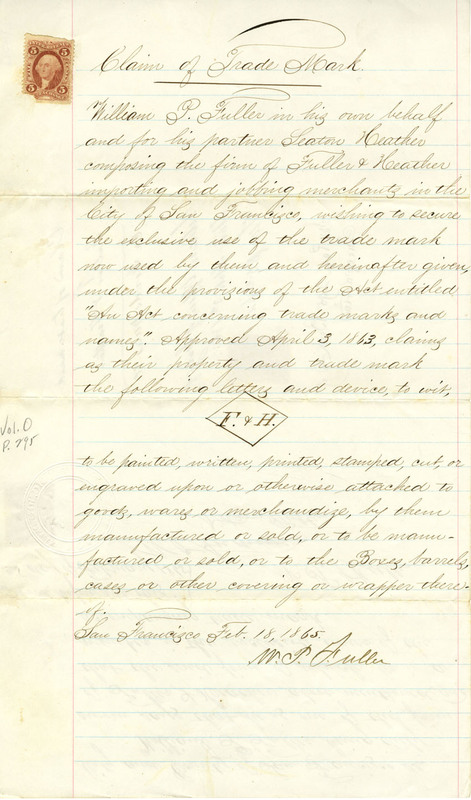 5 5
Claim of Trade Mark.
William P. Fuller in his own behalf
and for his partner Seaton Heather
composing the firm of Fuller & Heather
importing and jobbing merchants in the
City of San Francisco, wishing to secure
the exclusive use of the trade mark
now used by them and hereinafter given,
under the provisions of the Act entitled
"An Act concerning trade marks and
names". Approved April 3, 1863, claims
as their property and trade mark
the following letters and device, to wit,
F. & H.
Vol. O
P. 795
to be painted, written, printed, stamped, cut, or
engraved upon or otherwise attached to
goods, wares or merchandize, by them
manufactured or sold, or to be manu-
factured or sold, or to the Boxes, barrels,
cases or other covering or wrapper there-
of.
San Francisco Feb. 18, 1865.
W. P. Fuller